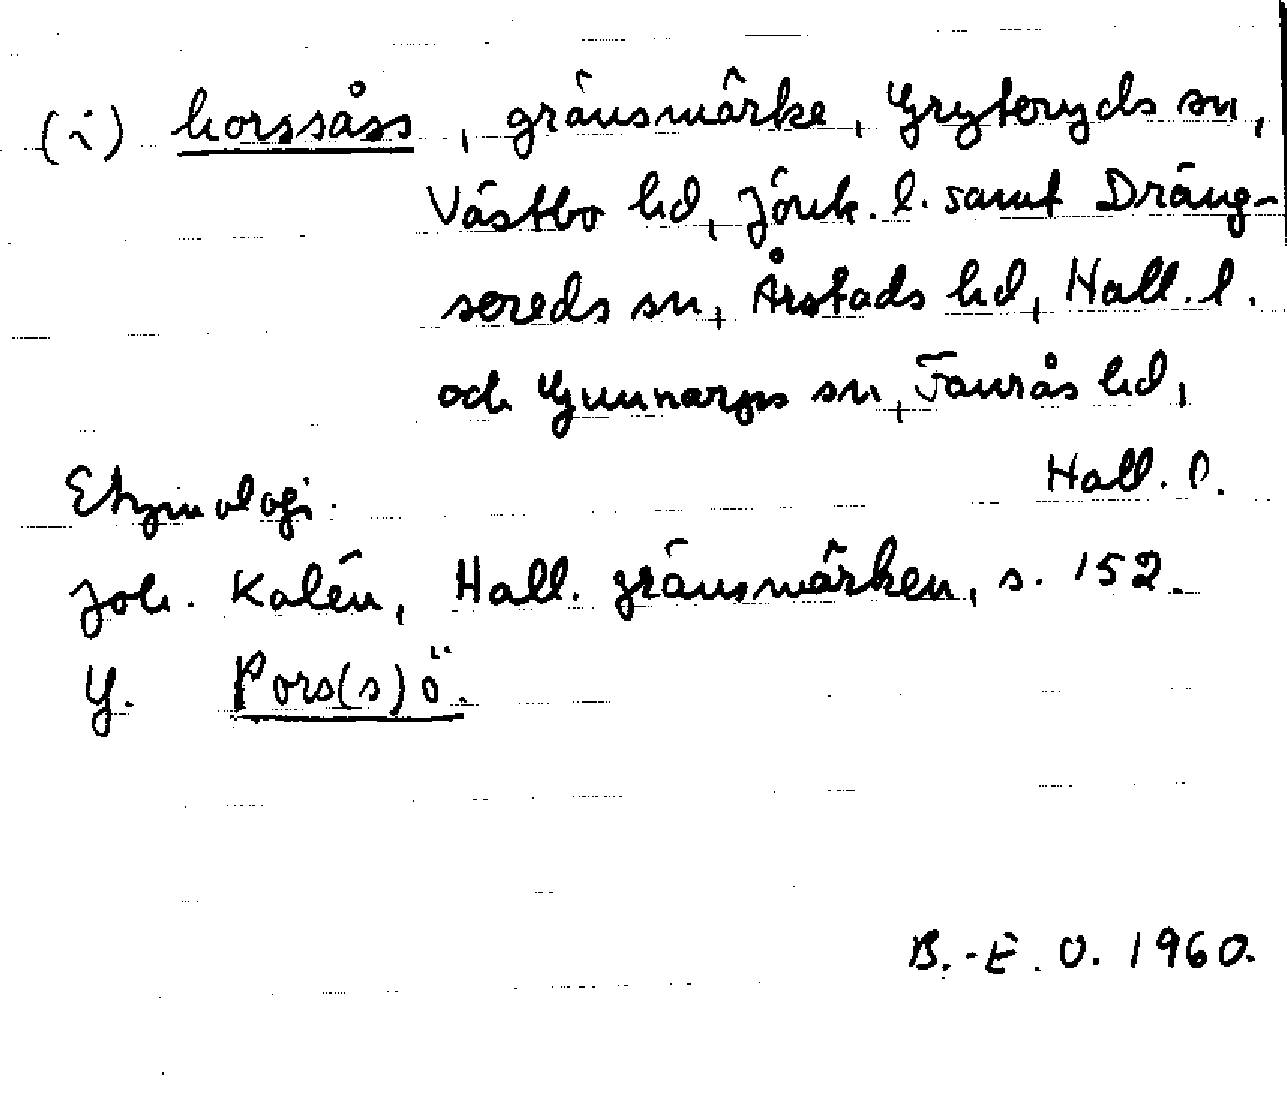 (i) horssåss, gränsmärke, Gryteryds sn,
Västbo hd, Jönk. l. samt Dräng-
sereds sn, Årstads hd, Hall. l.
och Gunnarps sn, Faurås hd,
Hall. l.
Etymologi.
Joh. Kalén, Hall. gränsmärken, s. 152.
Y. Pors(s)ö.
B.-E. O. 1960.